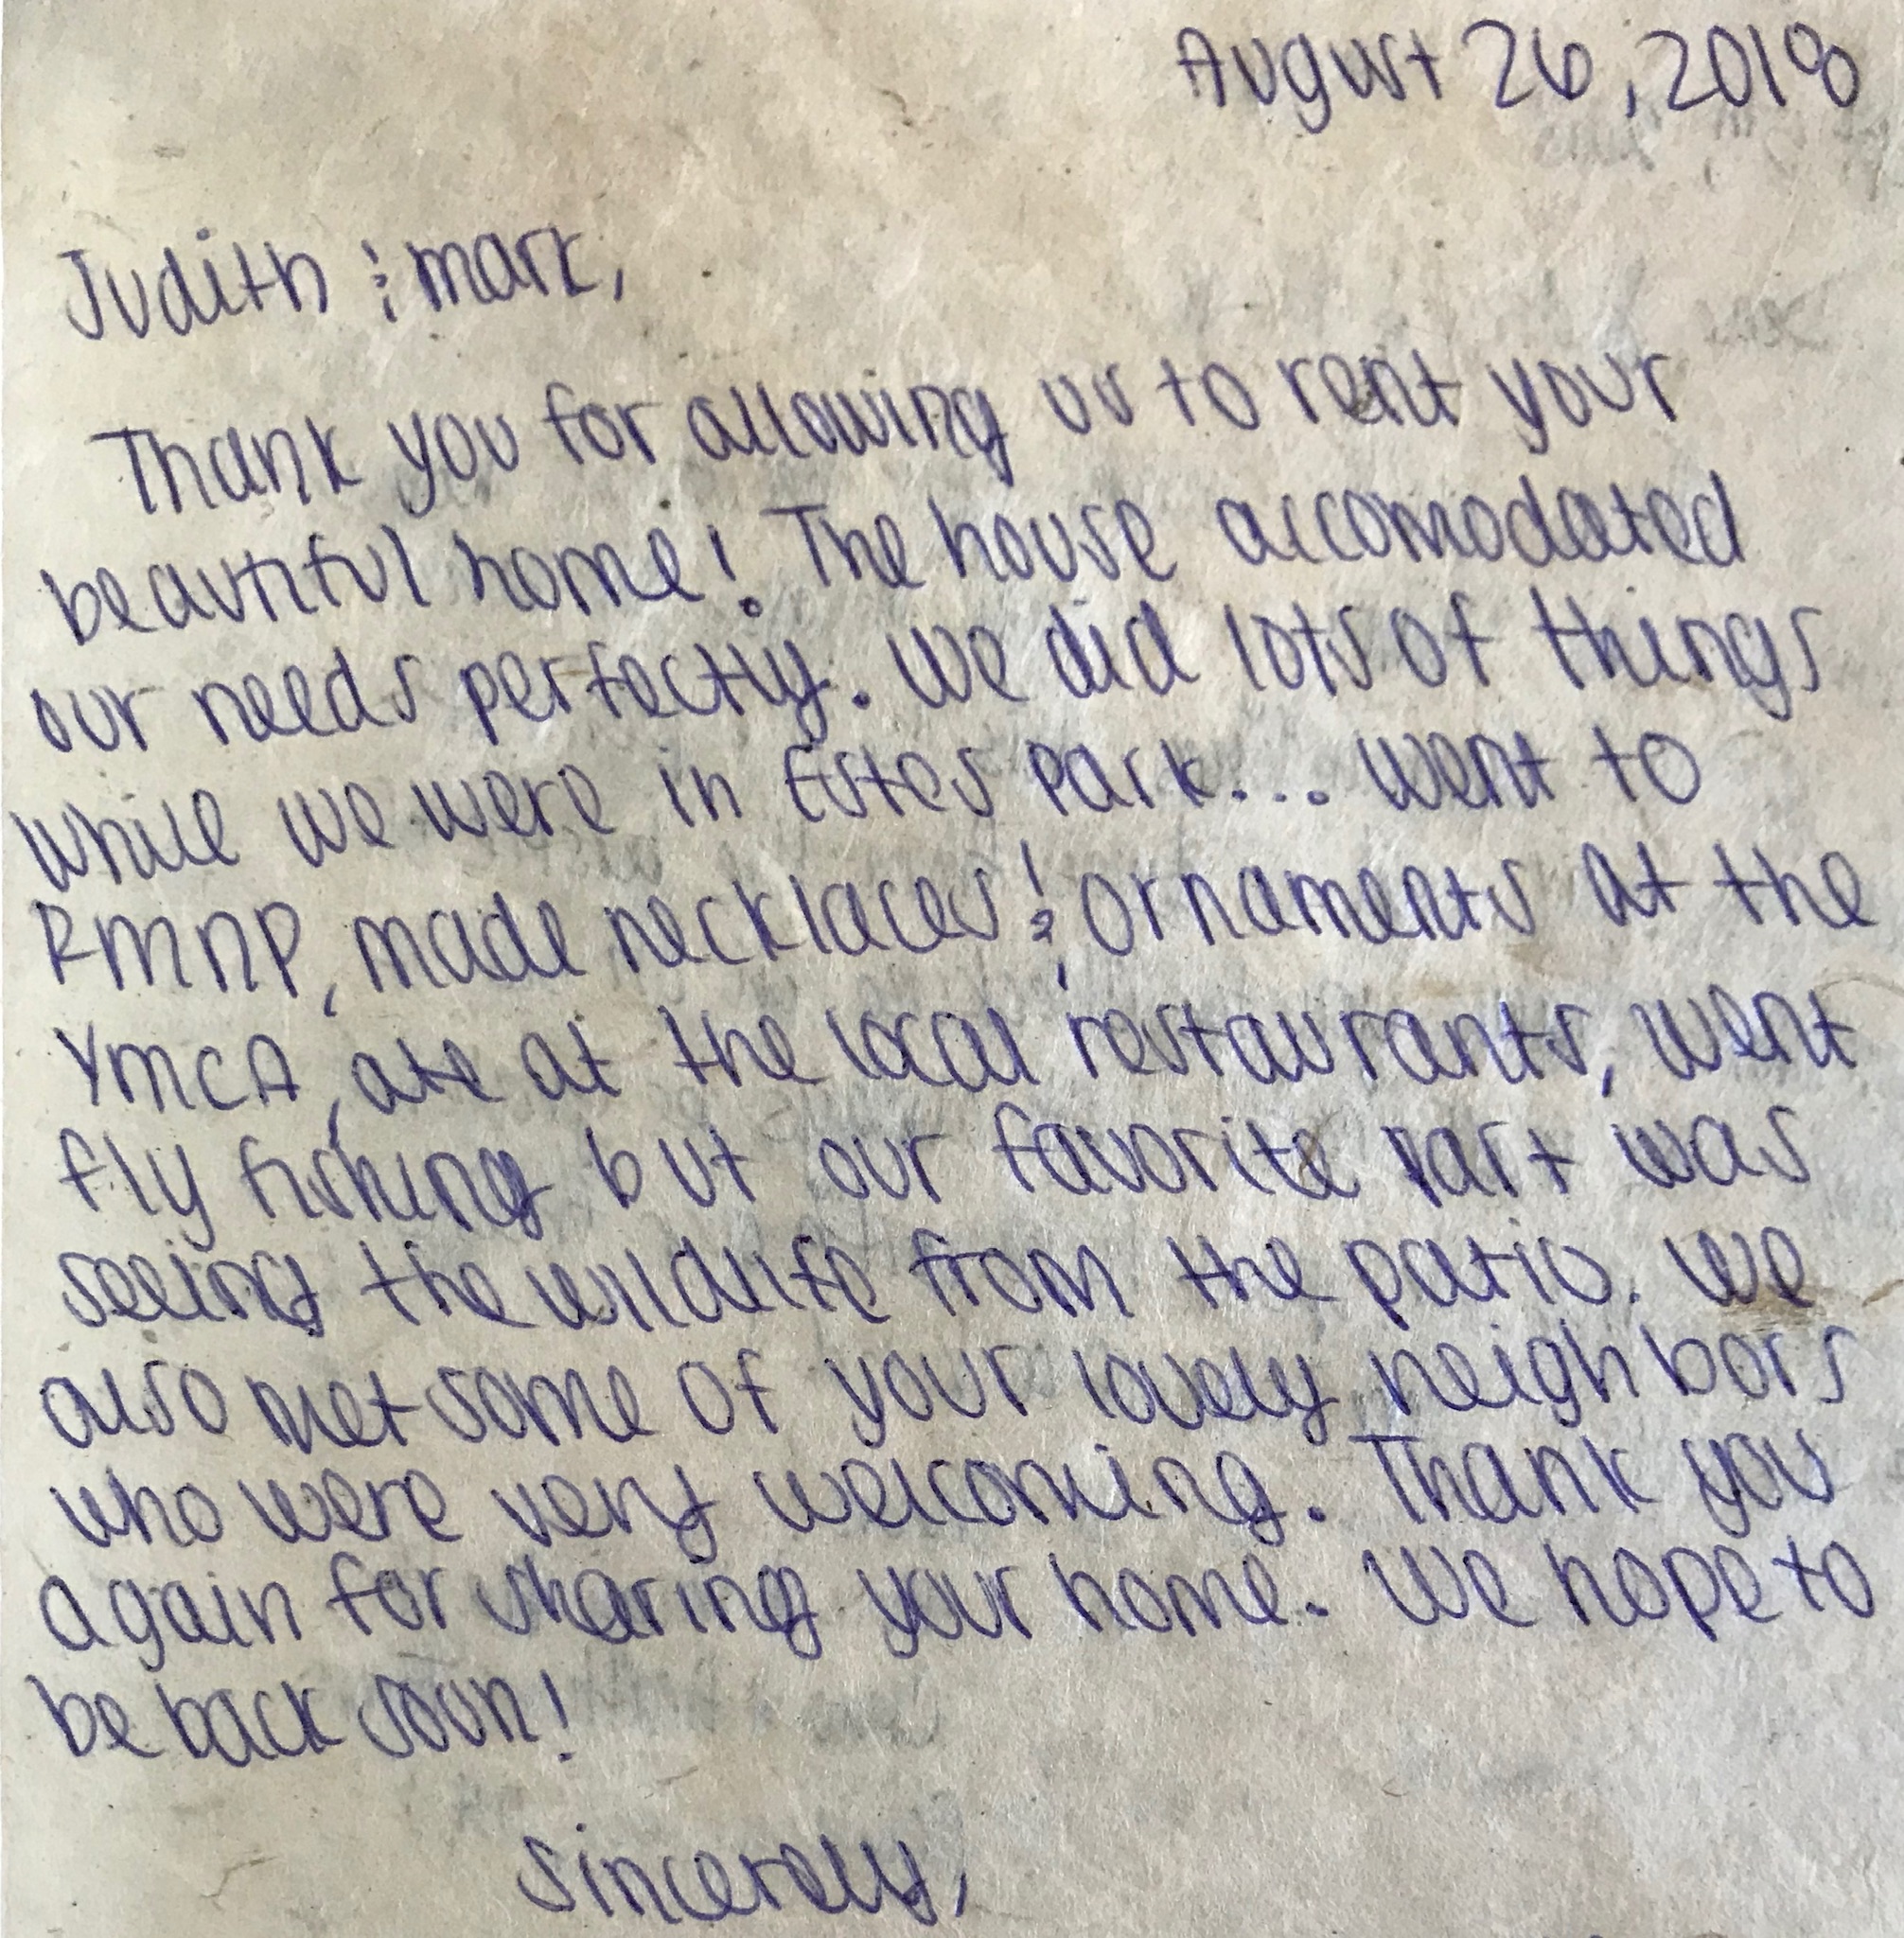 August 26, 2018
Judith & Mark,
Thank you for allowing us to rent your
beautiful home! The house accomodated
our needs perfectly. We did lots of things
while we were in Estes Park... went to
RMNP, made necklaces & ornaments at the
YMCA, ate at the local restaurants, went
fly fishing but our favorite part was
seeing the wildlife from the patio. We
also met some of your lovely neighbors
who were very welcoming. Thank you
again for sharing your home. We hope to
be back soon!
Sincerely,